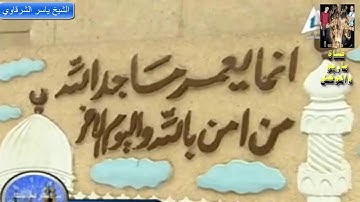 الشيخ ياسر الشرقاوي
انما يعمر مساجد الله
من امن بالله واليوم الاخر